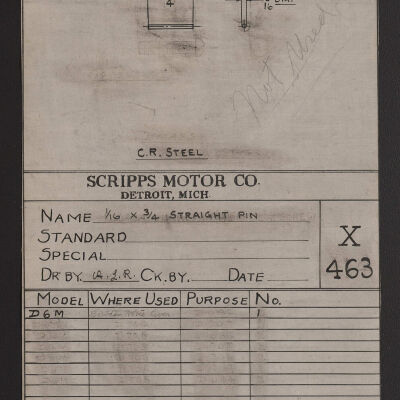 4
DIA.
16
Not Used
C.R. STEEL
SCRIPPS MOTOR CO.
DETROIT, MICH.
NAME 1/16 x 3/4 STRAIGHT PIN
STANDARD
SPECIAL
DR BY. A.J.R. CK.BY. DATE
X
463
MODEL WHERE USED PURPOSE NO.
D6M 1